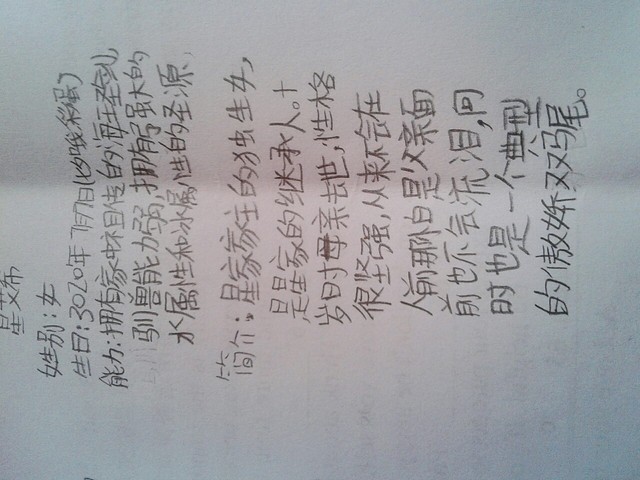 星艾希
姓别:女
生日:3020年7月7日(彩蛋)
能力:拥有家中祖传的海王圣剑,
驯兽能力弱,拥有强大的
水属性和冰属性的圣源
简介:星家家主的独生女,
是星家的继承人。十
岁时母亲去世,性格
很坚强,从来不会在
人前那怕是父亲面
前也不会流泪,同
时也是一个典型
的傲娇双马尾。